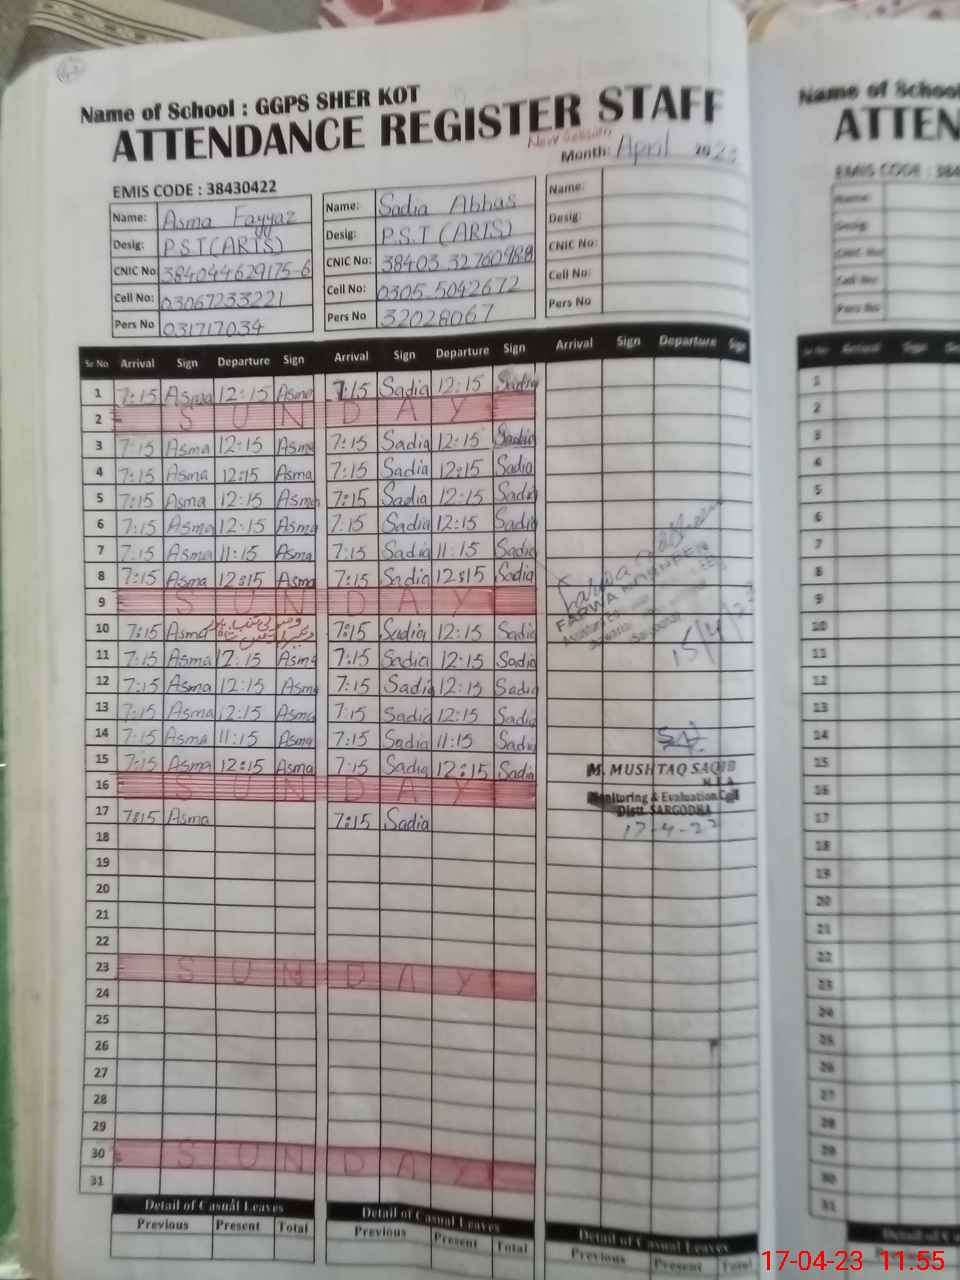 Name of School : GGPS SHER KOT
ATTENDANCE REGISTER STAFF
New Session
Month: April 2023
EMIS CODE : 38430422
Name: Asma Fayyaz
Desig: P.S.T (ARTS)
CNIC No 384044629175-6
Cell No: 03067233221
Pers No 031717034
Name: Sadia Abbas
Desig: P.S.T (ARTS)
CNIC No: 38403 32760988
Cell No: 0305 5042672
Pers No 32028067
Name:
Desig:
CNIC No:
Cell No:
Pers No
Sr No Arrival Sign Departure Sign Arrival Sign Departure Sign Arrival Sign Departure Sign
1 7:15 Asma 12:15 Asma 7:15 Sadia 12:15 Sadia
2 SUNDAY
3 7:15 Asma 12:15 Asma 7:15 Sadia 12:15 Sadia
4 7:15 Asma 12:15 Asma 7:15 Sadia 12:15 Sadia
5 7:15 Asma 12:15 Asma 7:15 Sadia 12:15 Sadia
6 7:15 Asma 12:15 Asma 7:15 Sadia 12:15 Sadia
7 7:15 Asma 11:15 Asma 7:15 Sadia 11:15 Sadia
8 7:15 Asma 12:15 Asma 7:15 Sadia 12:15 Sadia
9 SUNDAY
10 7:15 Asma 7:15 Sadia 12:15 Sadia
11 7:15 Asma 12:15 Asma 7:15 Sadia 12:15 Sadia
12 7:15 Asma 12:15 Asma 7:15 Sadia 12:15 Sadia
13 7:15 Asma 12:15 Asma 7:15 Sadia 12:15 Sadia
14 7:15 Asma 11:15 Asma 7:15 Sadia 11:15 Sadia
15 7:15 Asma 12:15 Asma 7:15 Sadia 12:15 Sadia
16 SUNDAY
17 7:15 Asma 7:15 Sadia
18
19
20
21
22
23 SUNDAY
24
25
26
27
28
29
30 SUNDAY
31
FARWA
15/4/23
M. MUSHTAQ SAQIB
M.E.A
Monitoring & Evaluation Cell
Distt. SARGODHA
17-4-23
Detail of Casual Leaves
Previous Present Total
Detail of Casual Leaves
Previous Present Total
Detail of Casual Leaves
Previous Present Total
Name of School
ATTEN
EMIS CODE : 384
Name:
Desig:
CNIC No
Cell No
Pers No
Sr No Arrival Sign
1
2
3
4
5
6
7
8
9
10
11
12
13
14
15
16
17
18
19
20
21
22
23
24
25
26
27
28
29
30
31
Detail of Ca
Previous
17-04-23 11.55